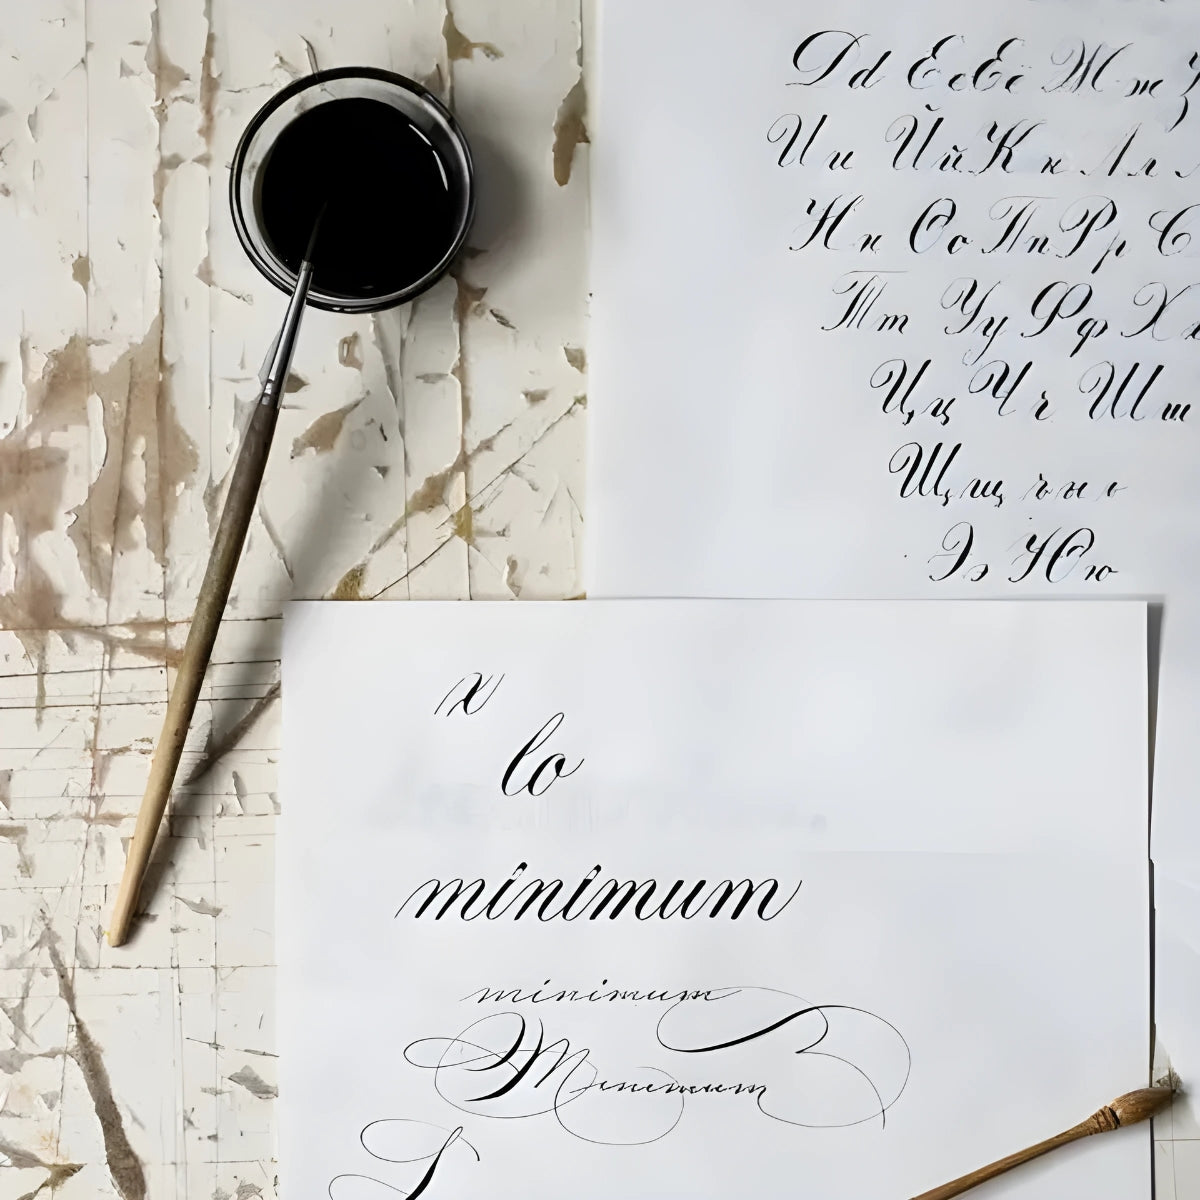 Дд Ее Ёё Жж З
Ии Йй Кк Лл
Нн Оо Пп Рр С
Тт Уу Фф Хх
Цц Чч Шш
Щщ ъ ы ь
Ээ Юю
x
lo
minimum
minimum
Minimum